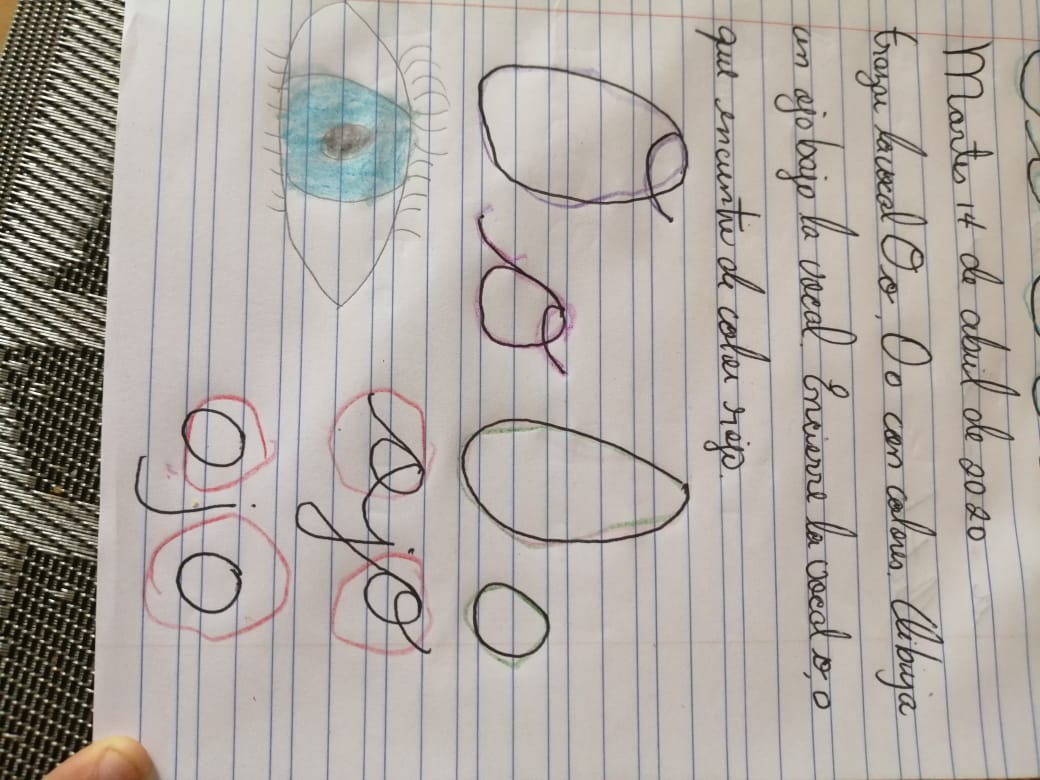 Martes 14 de abril de 2020
traza la vocal O o, O o con colores. Dibuja
un ojo bajo la vocal. Encierre la vocal o, o
que encuentre de color rojo.
O o O o
ojo
ojo